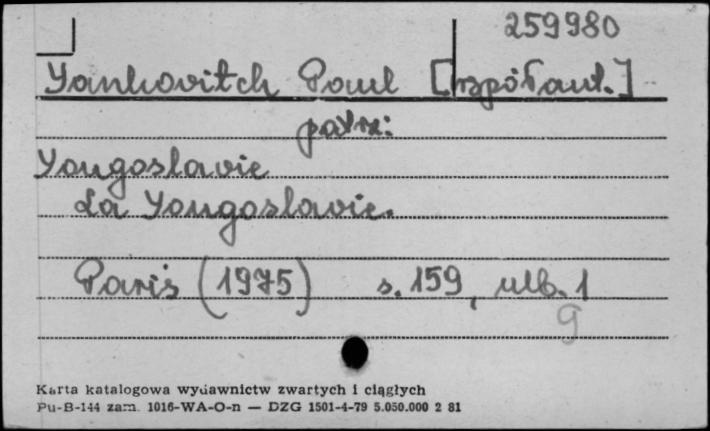 259980
Yankovitch Paul [współaut.]
patrz:
Yougoslavie
La Yougoslavie.
Paris (1975) s. 159, ulb. 1
9
Karta katalogowa wydawnictw zwartych i ciągłych
Pu-B-144 zam. 1016-WA-O-n — DZG 1501-4-79 5.050.000 2 81